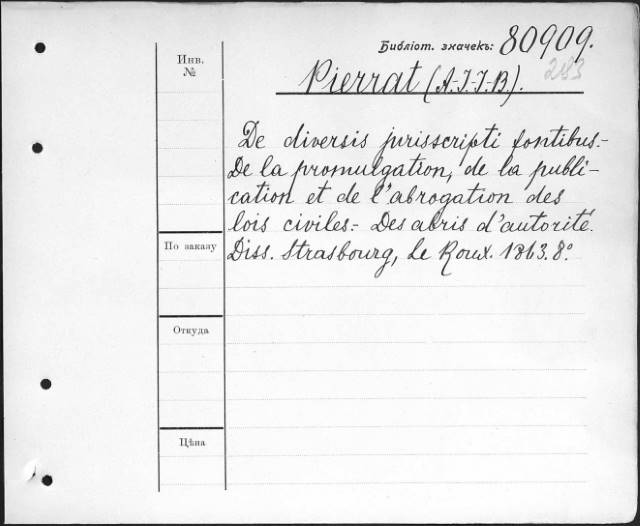 Библіот. значекъ: 80909.
283
Инв.
№
Pierrat (A.-J.-J.-B.).
De diversis jurisscripti fontibus.-
De la promulgation, de la publi-
cation et de l'abrogation des
lois civiles.- Des abris d'autorité.
Diss. Strasbourg, Le Roux. 1863. 8°.
По заказу
Откуда
Цѣна